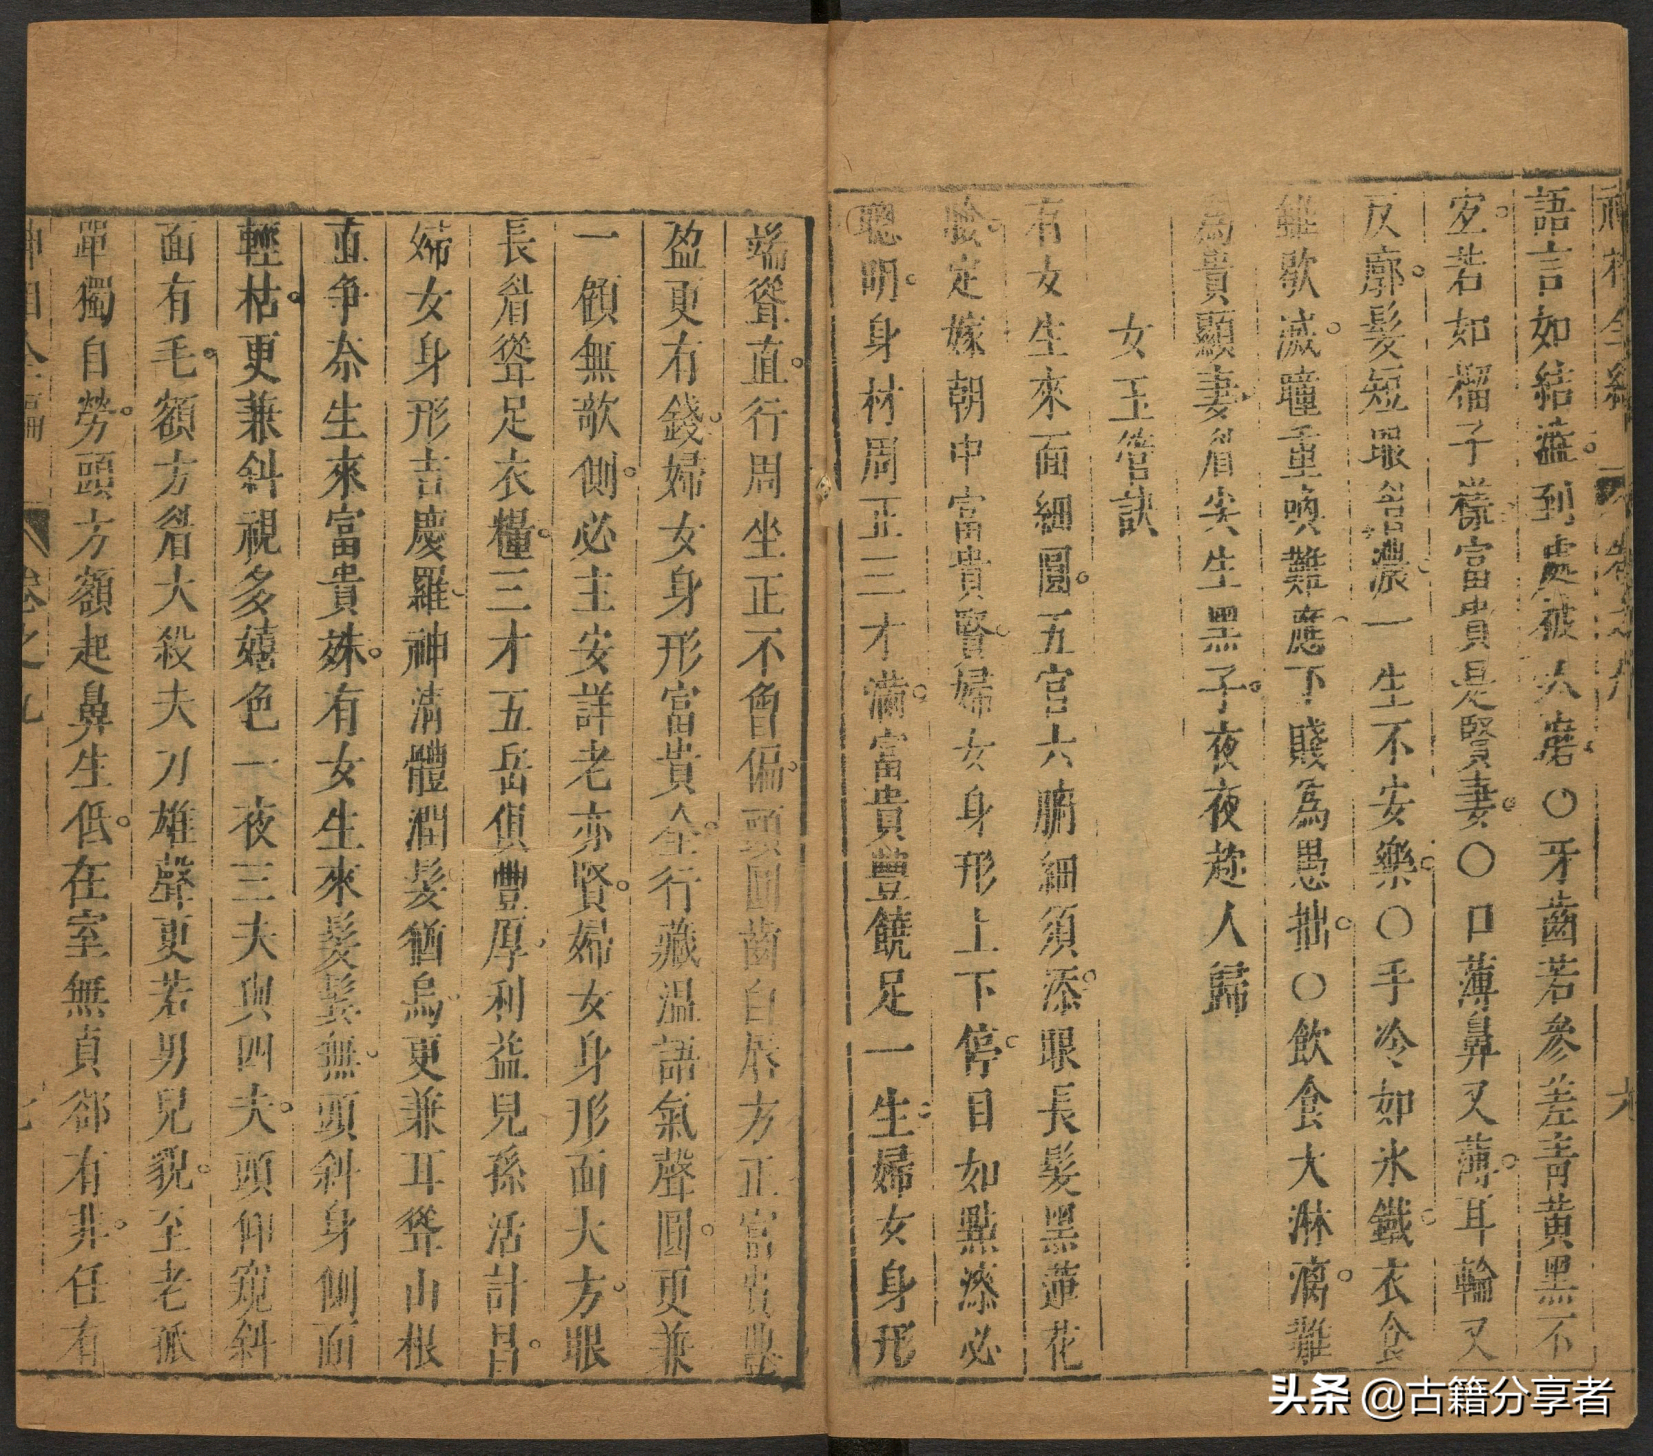 語言如結澁到處被人磨○牙齒若參差青黃黑不
定若如榴子樣富貴是賢妻○口薄鼻又薄耳輪又
反廓髮短眼濃一生不安樂○手冷如氷鐵衣食
雖歇滅瞳重喚難應下賤為愚拙○飲食大淋漓難
為貴顯妻眉尖生黑子夜夜趂人歸
女玉管訣
有女生來面細圓五官六腑細須添眼長髮黑蓮花
臉定嫁朝中富貴賢婦女身形上下停目如點漆必
聰明身材周正三才滿富貴豐饒足一生婦女身形
端聳直行周坐正不會偏頭圓齒白唇方正富貴豐
盈更有錢婦女身形富貴全行藏温語氣聲圓更兼
一顧無欹側必主安詳老亦賢婦女身形面大方眼
長眉聳足衣糧三才五岳俱豐厚利益兒孫活計昌
婦女身形吉慶羅神清體潤髮猶烏更兼耳聳山根
直争奈生來富貴姝有女生來髮鬓無頭斜身側面
輕枯更兼斜視多嬉色一夜三夫與四夫頭仰窺斜
面有毛額方眉大殺夫刀雄聲更若男兒貌至老孤
單獨自勞頭方額起鼻生低在室無貞郤有非任有
神相全編 卷之九
頭条 @古籍分享者